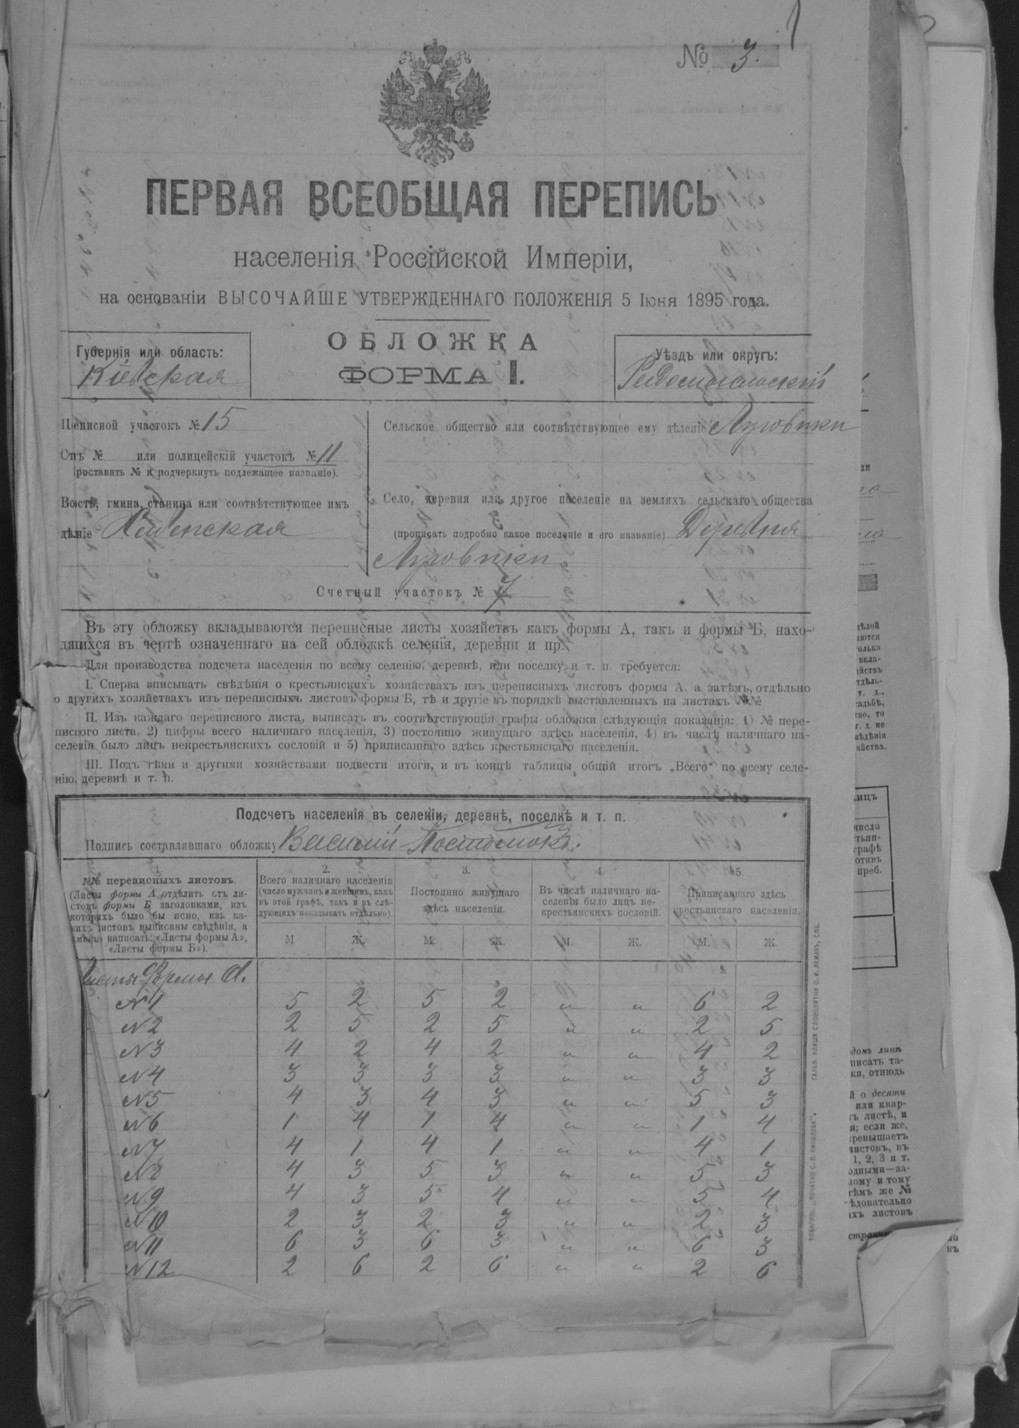 № 3.
ПЕРВАЯ ВСЕОБЩАЯ ПЕРЕПИСЬ
населенія Россійской Имперіи,
на основаніи ВЫСОЧАЙШЕ УТВЕРЖДЕННАГО ПОЛОЖЕНІЯ 5 Іюня 1895 года.
ОБЛОЖКА
ФОРМА I.
Губернія или область:
Кіевская
Уѣздъ или округъ:
Радомысльскій
Переписной участокъ № 15
Станъ № или полицейскій участокъ № 11
(поставить № и подчеркнуть подлежащее названіе).
Волость, гмина, станица или соотвѣтствующее имъ
дѣленіе Хабенская
Сельское общество или соотвѣтствующее ему дѣленіе Луговики
Село, деревня или другое поселеніе на земляхъ сельскаго общества
(прописать подробно какое поселеніе и его названіе) Деревня
Луговики
Счетный участокъ № 7
Въ эту обложку вкладываются переписные листы хозяйствъ какъ формы А, такъ и формы Б, нахо-
дящихся въ чертѣ означеннаго на сей обложкѣ селенія, деревни и пр.
Для производства подсчета населенія по всему селенію, деревнѣ, или поселку и т. п. требуется:
I. Сперва вписывать свѣдѣнія о крестьянскихъ хозяйствахъ изъ переписныхъ листовъ формы А. а затѣмъ, отдѣльно
о другихъ хозяйствахъ изъ переписныхъ листовъ формы Б, тѣ и другіе въ порядкѣ выставленныхъ на листахъ №№
II. Изъ каждаго переписного листа, выписать въ соотвѣтствующія графы обложки слѣдующія показанія: 1) № пере-
писного листа, 2) цифры всего наличнаго населенія, 3) постоянно живущаго здѣсь населенія, 4) въ числѣ наличнаго на-
селенія было лицъ некрестьянскихъ сословій и 5) приписаннаго здѣсь крестьянскаго населенія.
III. Подъ тѣми и другими хозяйствами подвести итоги, и въ концѣ таблицы общій итогъ „Всего" по всему селе-
нію, деревнѣ и т. п.
Подсчетъ населенія въ селеніи, деревнѣ, поселкѣ и т. п.
Подпись составлявшаго обложку Василій
1.
№№ переписныхъ листовъ.
(Листы формы А отдѣлить отъ ли-
стовъ формы Б заголовками, изъ
которыхъ было бы ясно, изъ ка-
кихъ листовъ выписаны свѣдѣнія, а
именно написать: «Листы формы А»,
«Листы формы Б»).
2.
Всего наличнаго населенія
(число мужчинъ и женщинъ, какъ
въ этой графѣ, такъ и въ слѣ-
дующихъ показывать отдѣльно).
3.
Постоянно живущаго
здѣсь населенія.
4.
Въ числѣ наличнаго на-
селенія было лицъ не-
крестьянскихъ сословій.
5.
Приписаннаго здѣсь
крестьянскаго населенія.
М Ж. М. Ж. М. Ж. М. Ж.
Листы формы А.
№1 5 2 5 2 " " 6 2
№2 2 5 2 5 " " 2 5
№3 4 2 4 2 " " 4 2
№4 3 3 3 3 " " 3 3
№5 4 3 4 3 " " 5 3
№6 1 4 1 4 " " 1 4
№7 4 1 4 1 " " 4 1
№8 4 3 5 3 " " 5 3
№9 4 3 5 4 " " 5 4
№10 2 3 2 3 " " 2 3
№11 6 3 6 3 " " 6 3
№12 2 6 2 6 " " 2 6